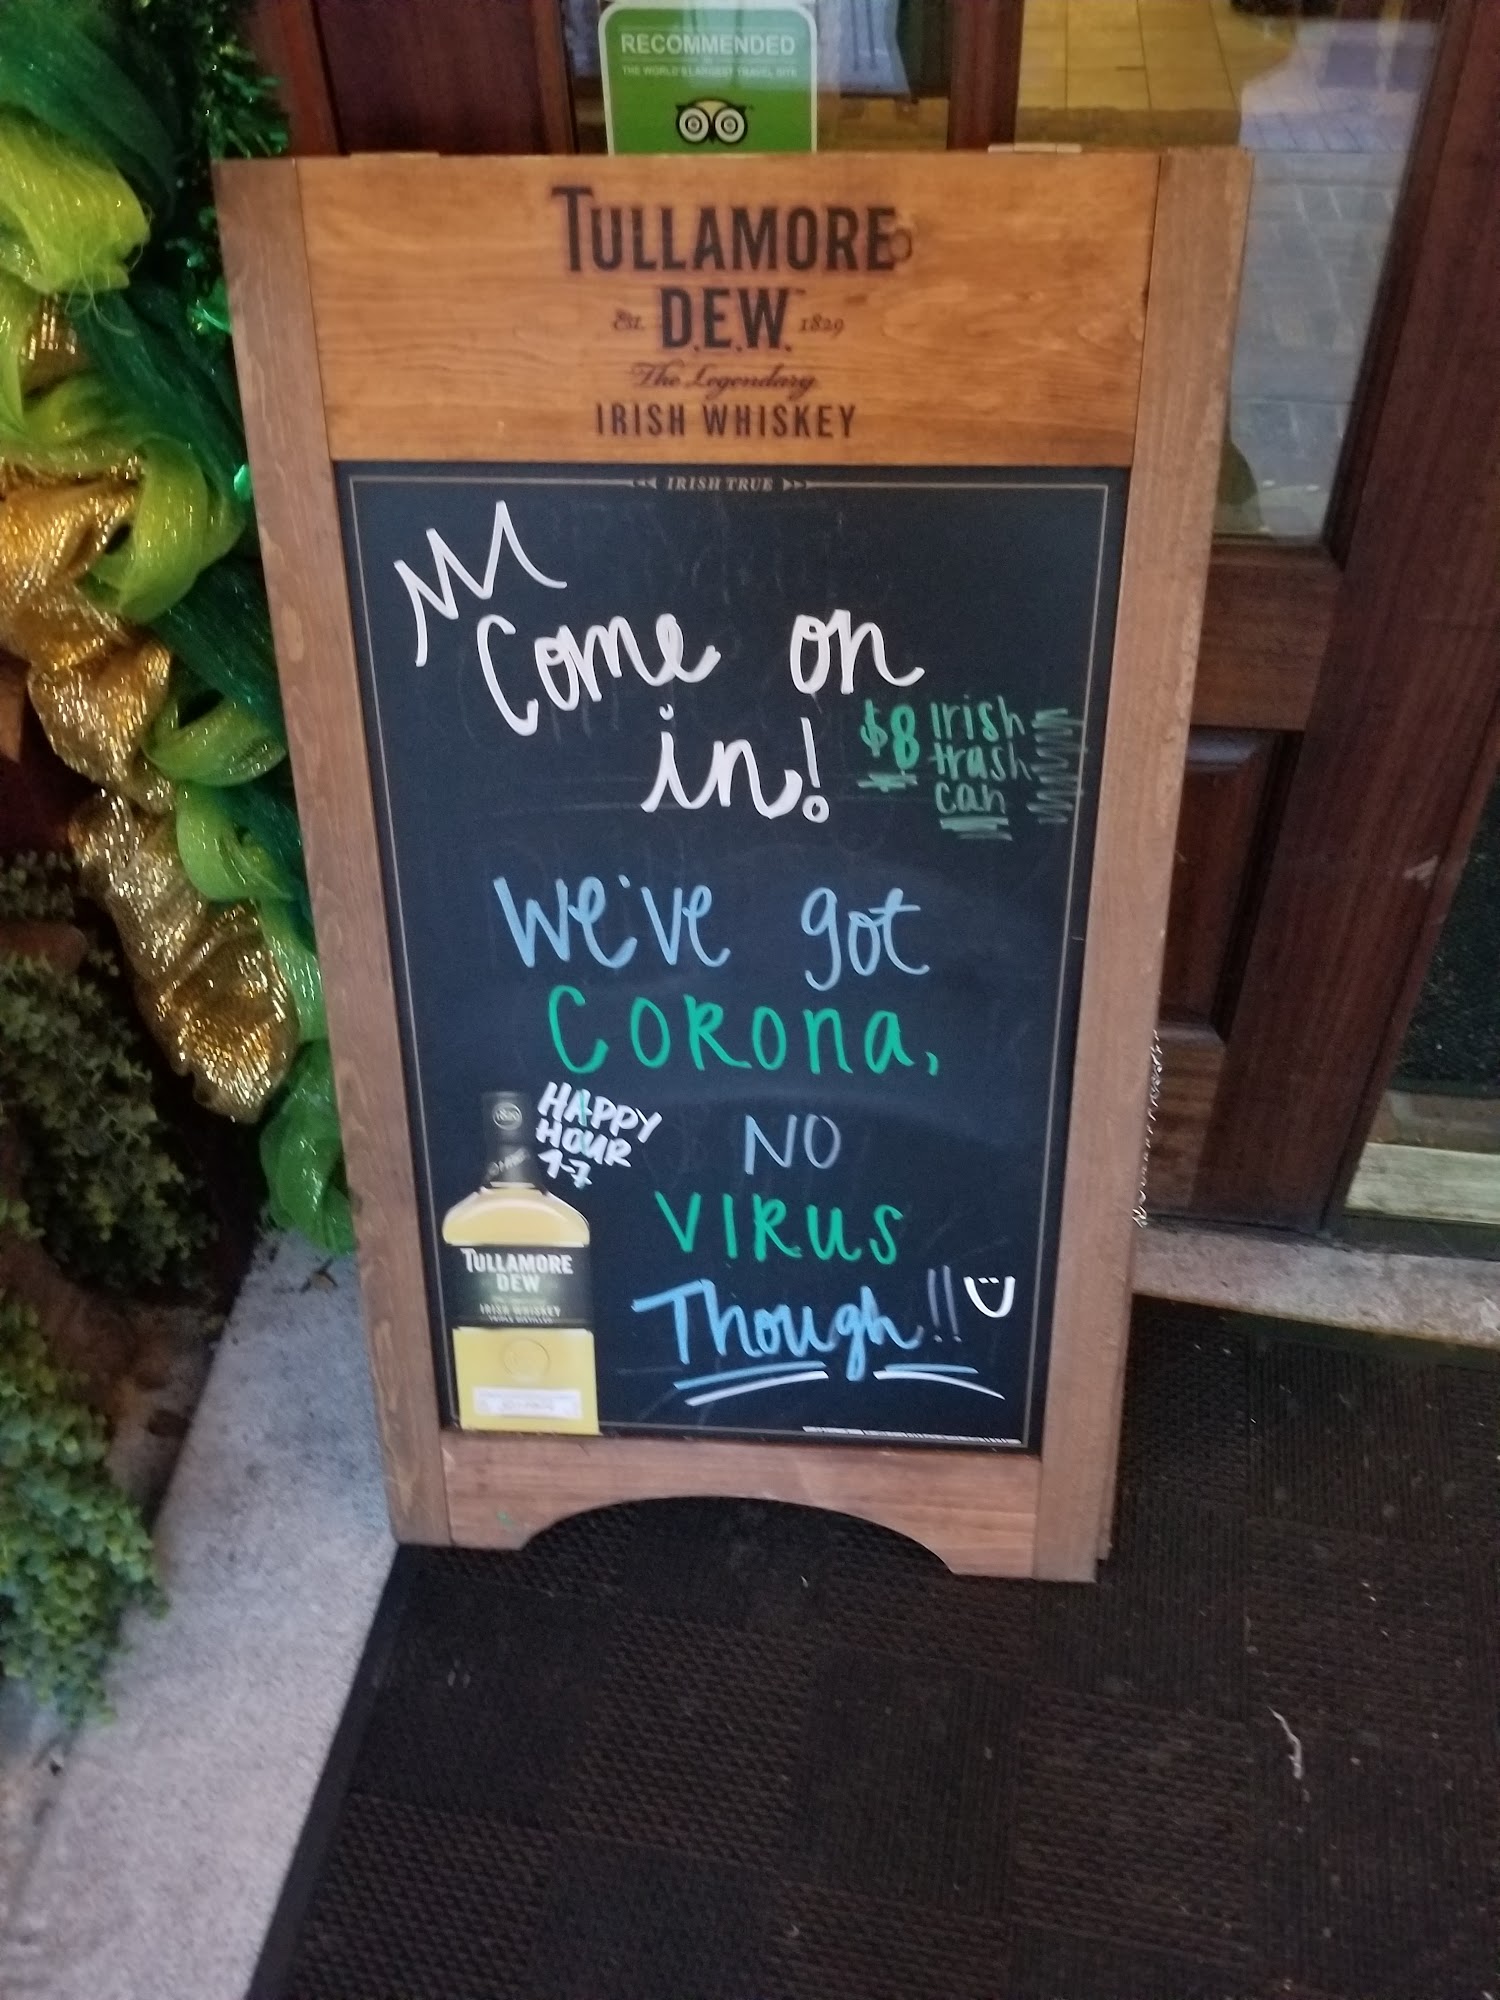 RECOMMENDED
THE WORLD'S LARGEST TRAVEL SITE
TULLAMORE
EST. D.E.W. 1829
The Legendary
IRISH WHISKEY
IRISH TRUE
Come on
in!
$8 Irish
trash
can
We've got
CORONA,
HAPPY
HOUR
4-7
NO
VIRUS
Though!!
1829
TULLAMORE
DEW
IRISH WHISKEY
TRIPLE DISTILLED